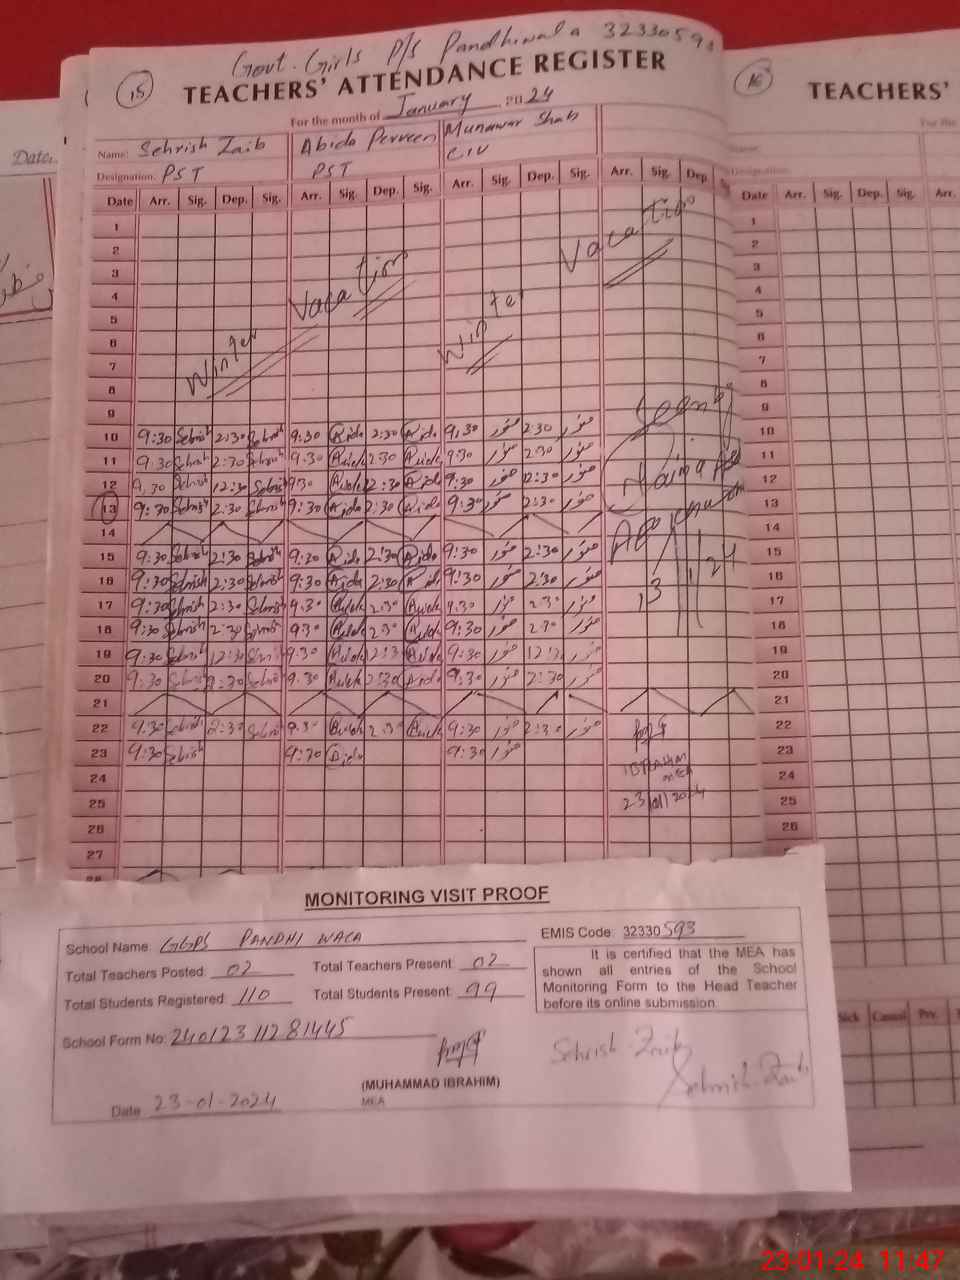 Govt. Girls P/S Pandhiwala 32330593
15
TEACHERS' ATTENDANCE REGISTER
For the month of January 2024
Name: Sehrish Zaib Abida Perveen Munawar Shah
Designation: PST PST C/IV
Date Arr. Sig. Dep. Sig. Arr. Sig. Dep. Sig. Arr. Sig. Dep. Sig. Arr. Sig. Dep.
1
2
3
4
5
6
7
8
Winter Vacation Winter Vacation
9
10 9:30 Sehrish 2:30 Sehrish 9:30 Abida 2:30 Abida 9:30 منور 2:30 منور
11 9:30 Sehrish 2:30 Sehrish 9:30 Abida 2:30 Abida 9:30 منور 2:30 منور
12 9:30 Sehrish 12:30 Sehrish 9:30 Abida 12:30 Abida 9:30 منور 12:30 منور
13 9:30 Sehrish 2:30 Sehrish 9:30 Abida 2:30 Abida 9:30 منور 2:30 منور
14
15 9:30 Sehrish 2:30 Sehrish 9:30 Abida 2:30 Abida 9:30 منور 2:30 منور
16 9:30 Sehrish 2:30 Sehrish 9:30 Abida 2:30 Abida 9:30 منور 2:30 منور
17 9:30 Sehrish 2:30 Sehrish 9:30 Abida 2:30 Abida 9:30 منور 2:30 منور
18 9:30 Sehrish 2:30 Sehrish 9:30 Abida 2:30 Abida 9:30 منور 2:30 منور
19 9:30 Sehrish 12:30 Sehrish 9:30 Abida 12:30 Abida 9:30 منور 12:30 منور
20 9:30 Sehrish 2:30 Sehrish 9:30 Abida 2:30 Abida 9:30 منور 2:30 منور
21
22 9:30 Sehrish 2:30 Sehrish 9:30 Abida 2:30 Abida 9:30 منور 2:30 منور
23 9:30 Sehrish 9:30 Abida 9:30 منور
24
25
26
27
Seen
13/1/24
IBRAHIM
MEA
23/01/2024
16
TEACHERS'
For the
Name:
Designation:
Date Arr. Sig. Dep. Sig. Arr.
1
2
3
4
5
6
7
8
9
10
11
12
13
14
15
16
17
18
19
20
21
22
23
24
25
26
Sick Casual Prv.
Date
MONITORING VISIT PROOF
School Name: GGPS PANDHI WALA EMIS Code: 32330593
Total Teachers Posted: 02 Total Teachers Present: 02
Total Students Registered: 110 Total Students Present: 99
School Form No: 24012311281445
It is certified that the MEA has
shown all entries of the School
Monitoring Form to the Head Teacher
before its online submission.
Sehrish Zaib
Sehrish Zaib
(MUHAMMAD IBRAHIM)
MEA
Date 23-01-2024
23-01-24 11:47